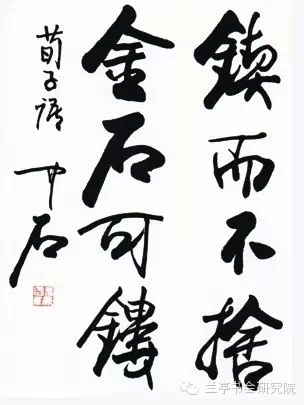 鍥而不捨
金石可鏤
荀子語
中石
兰亭书画研究院